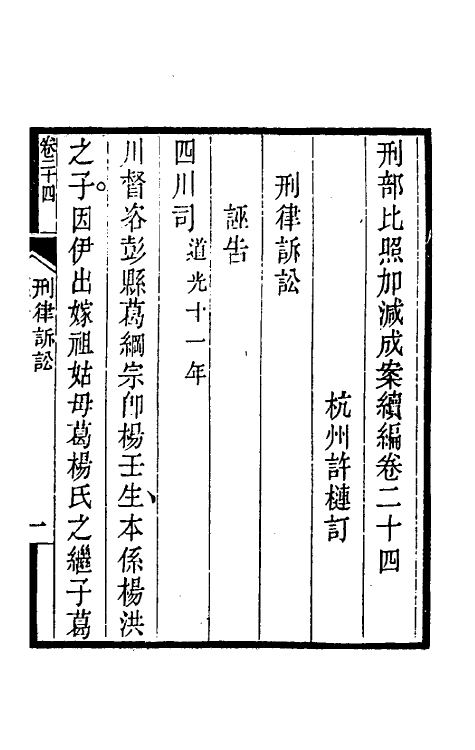 刑部比照加減成案續編卷二十四
杭州許槤訂
刑律訴訟
誣告
四川司 道光十一年
川督咨彭縣葛綱宗卽楊壬生本係楊洪
之子因伊出嫁祖姑母葛楊氏之繼子葛
卷二十四 刑律訴訟 一